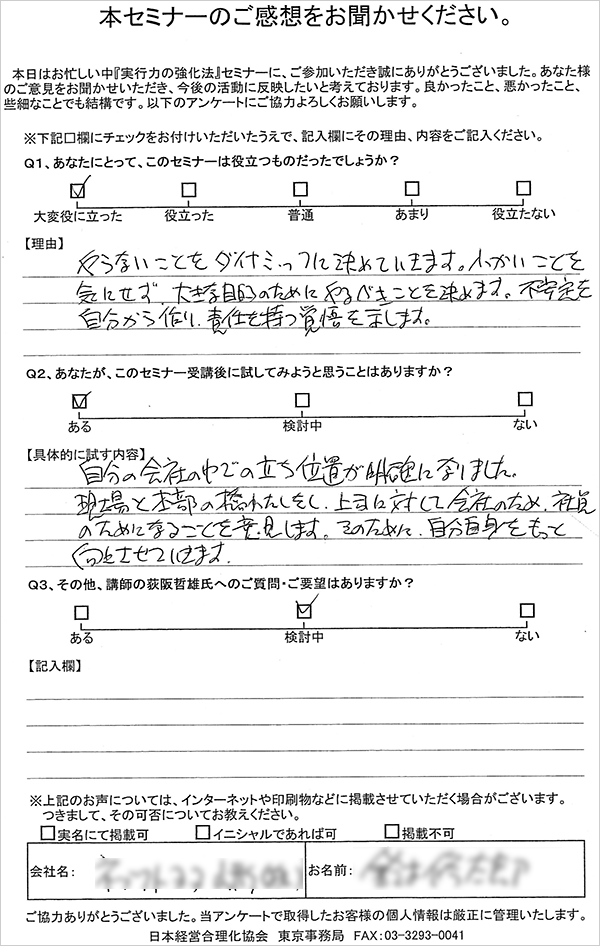 本セミナーのご感想をお聞かせください。
本日はお忙しい中『実行力の強化法』セミナーに、ご参加いただき誠にありがとうございました。あなた様
のご意見をお聞かせいただき、今後の活動に反映したいと考えております。良かったこと、悪かったこと、
些細なことでも結構です。以下のアンケートにご協力よろしくお願いします。
※下記口欄にチェックをお付けいただいたうえで、記入欄にその理由、内容をご記入ください。
Q1、あなたにとって、このセミナーは役立つものだったでしょうか?
大変役に立った 役立った 普通 あまり 役立たない
【理由】
やらないことをダイナミックに決めていきます。小かいことを
気にせず、大きな目的のためにやるべきことを決めます。不安定を
自分から作り、責任を持つ覚悟を示します。
Q2、あなたが、このセミナー受講後に試してみようと思うことはありますか?
ある 検討中 ない
【具体的に試す内容】
自分の会社の中での立ち位置が明確になりました。
現場と本部の橋わたしをし、上司に対して会社のため、社員
のためになることを意見します。そのために、自分自身をもっと
向上させていきます。
Q3、その他、講師の荻阪哲雄氏へのご質問・ご要望はありますか?
ある 検討中 ない
【記入欄】
※上記のお声については、インターネットや印刷物などに掲載させていただく場合がございます。
つきまして、その可否についてお教えください。
□実名にて掲載可 □イニシャルであれば可 □掲載不可
会社名: お名前:
ご協力ありがとうございました。当アンケートで取得したお客様の個人情報は厳正に管理いたします。
日本経営合理化協会 東京事務局 FAX:03-3293-0041